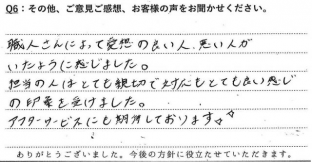 Q6：その他、ご意見ご感想、お客様の声をお聞かせください。
職人さんによって愛想の良い人、悪い人が
いたように感じました。
担当の人はとても親切で対応もとても良い感じ
の印象を受けました。
アフターサービスにも期待しております☆☆
ありがとうございました。今後の方針に役立たせていただきます。